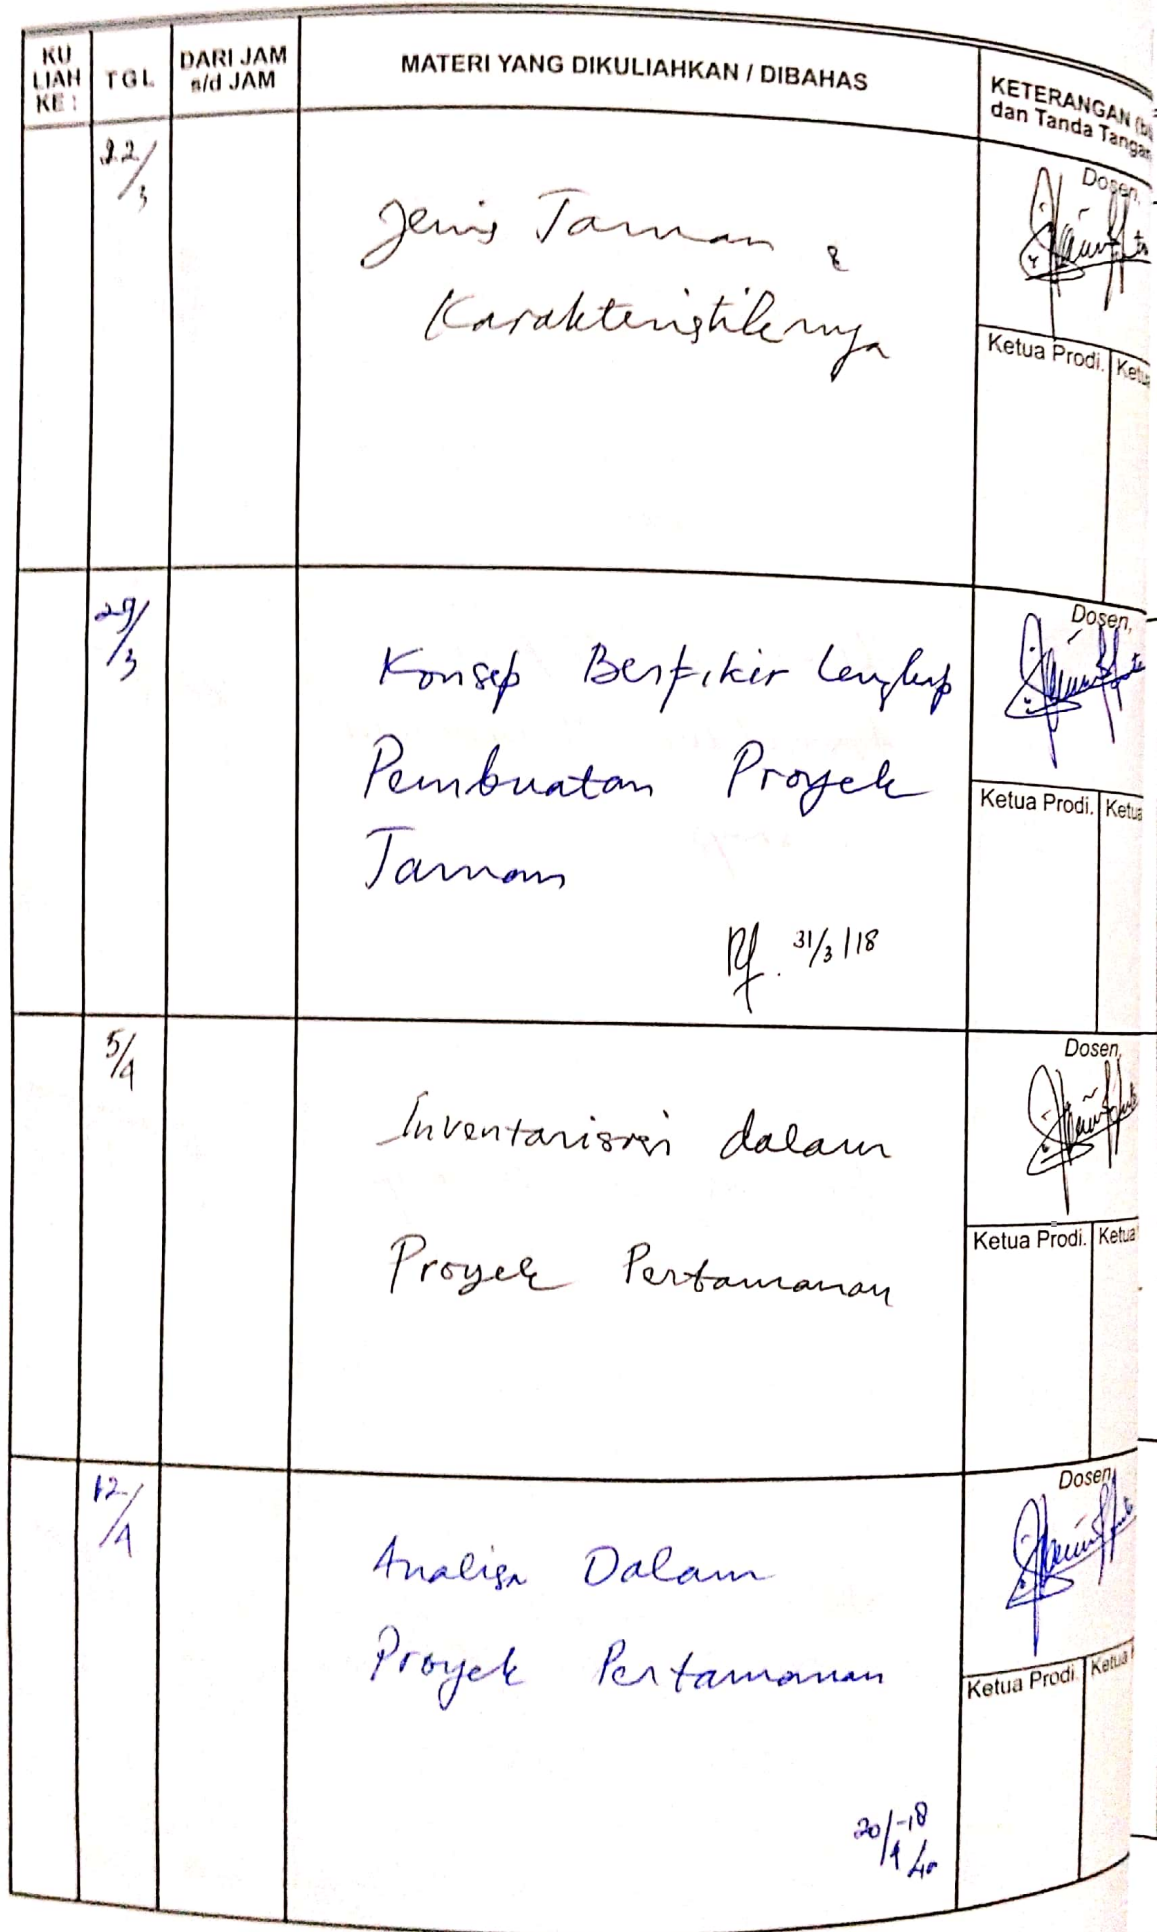 KU LIAH KE :
TGL
DARI JAM s/d JAM
MATERI YANG DIKULIAHKAN / DIBAHAS
KETERANGAN
dan Tanda Tangan
22/3
Jenis Taman &
Karakteristiknya
Dosen,
Ketua Prodi.
Ketua
29/3
Konsep Berfikir Lengkap
Pembuatan Proyek
Taman
31/3/18
Dosen,
Ketua Prodi.
Ketua
5/4
Inventarisasi dalam
Proyek Pertamanan
Dosen,
Ketua Prodi.
Ketua
12/4
Analisa Dalam
Proyek Pertamanan
20/4-18
Dosen,
Ketua Prodi.
Ketua